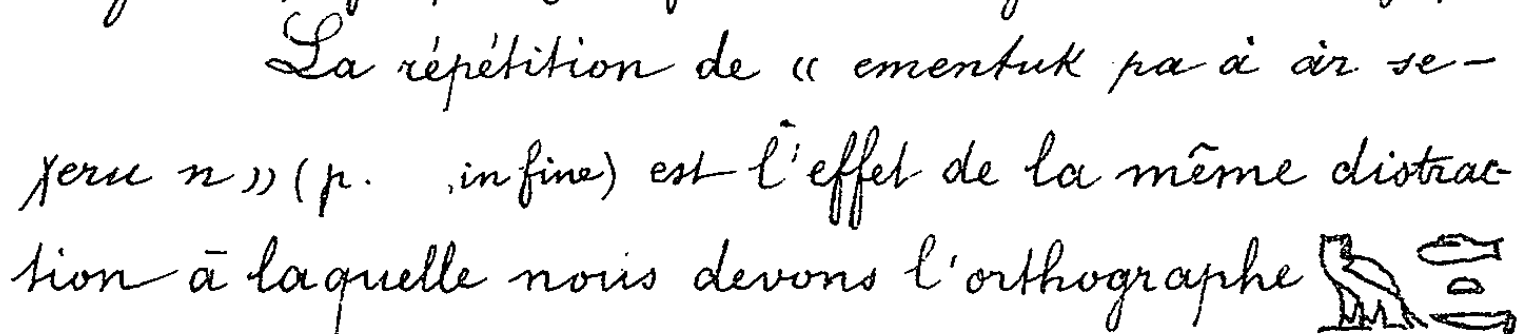 La répétition de « ementuk pa à àr se-
χeru n » (p. , in fine) est l'effet de la même distrac-
tion à laquelle nous devons l'orthographe 𓅓